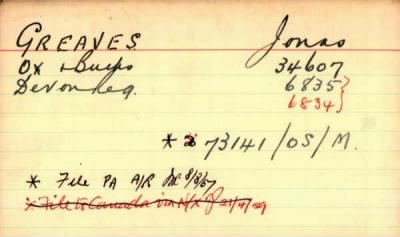 GREAVES Jonas
Ox & Bucks 34607
Devon Reg. 6835}
6834}
* 73141/OS/M.
* File PA A/R 8/8/67
* File to Canada via 21/4/29